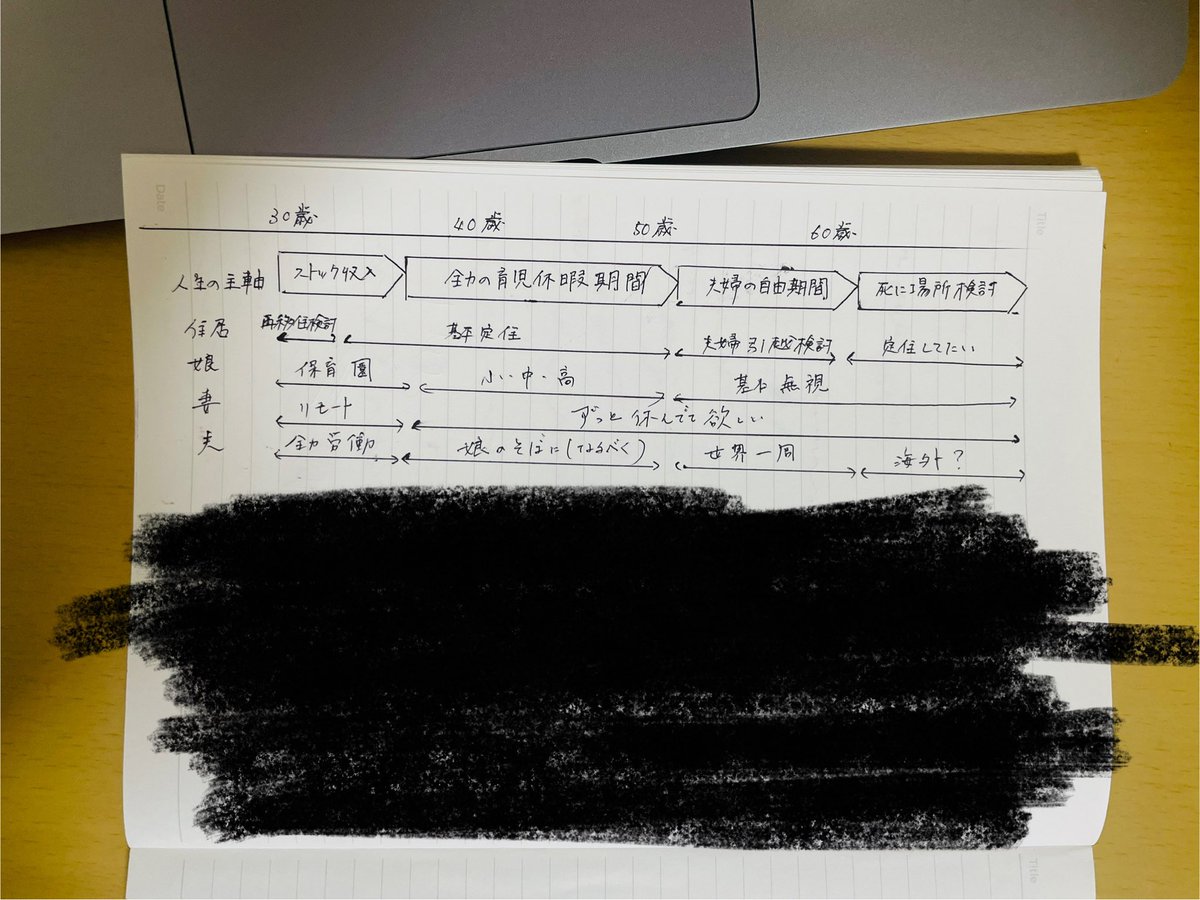 Date
Title
30歳 40歳 50歳 60歳
人生の主軸 ストック収入 全力の育児休暇期間 夫婦の自由期間 死に場所検討
住居 再移住検討 基本定住 夫婦引越検討 定住してたい
娘 保育園 小・中・高 基本無視
妻 リモート ずっと休んでて欲しい
夫 全力労働 娘のそばに(なるべく) 世界一周 海外?
Title